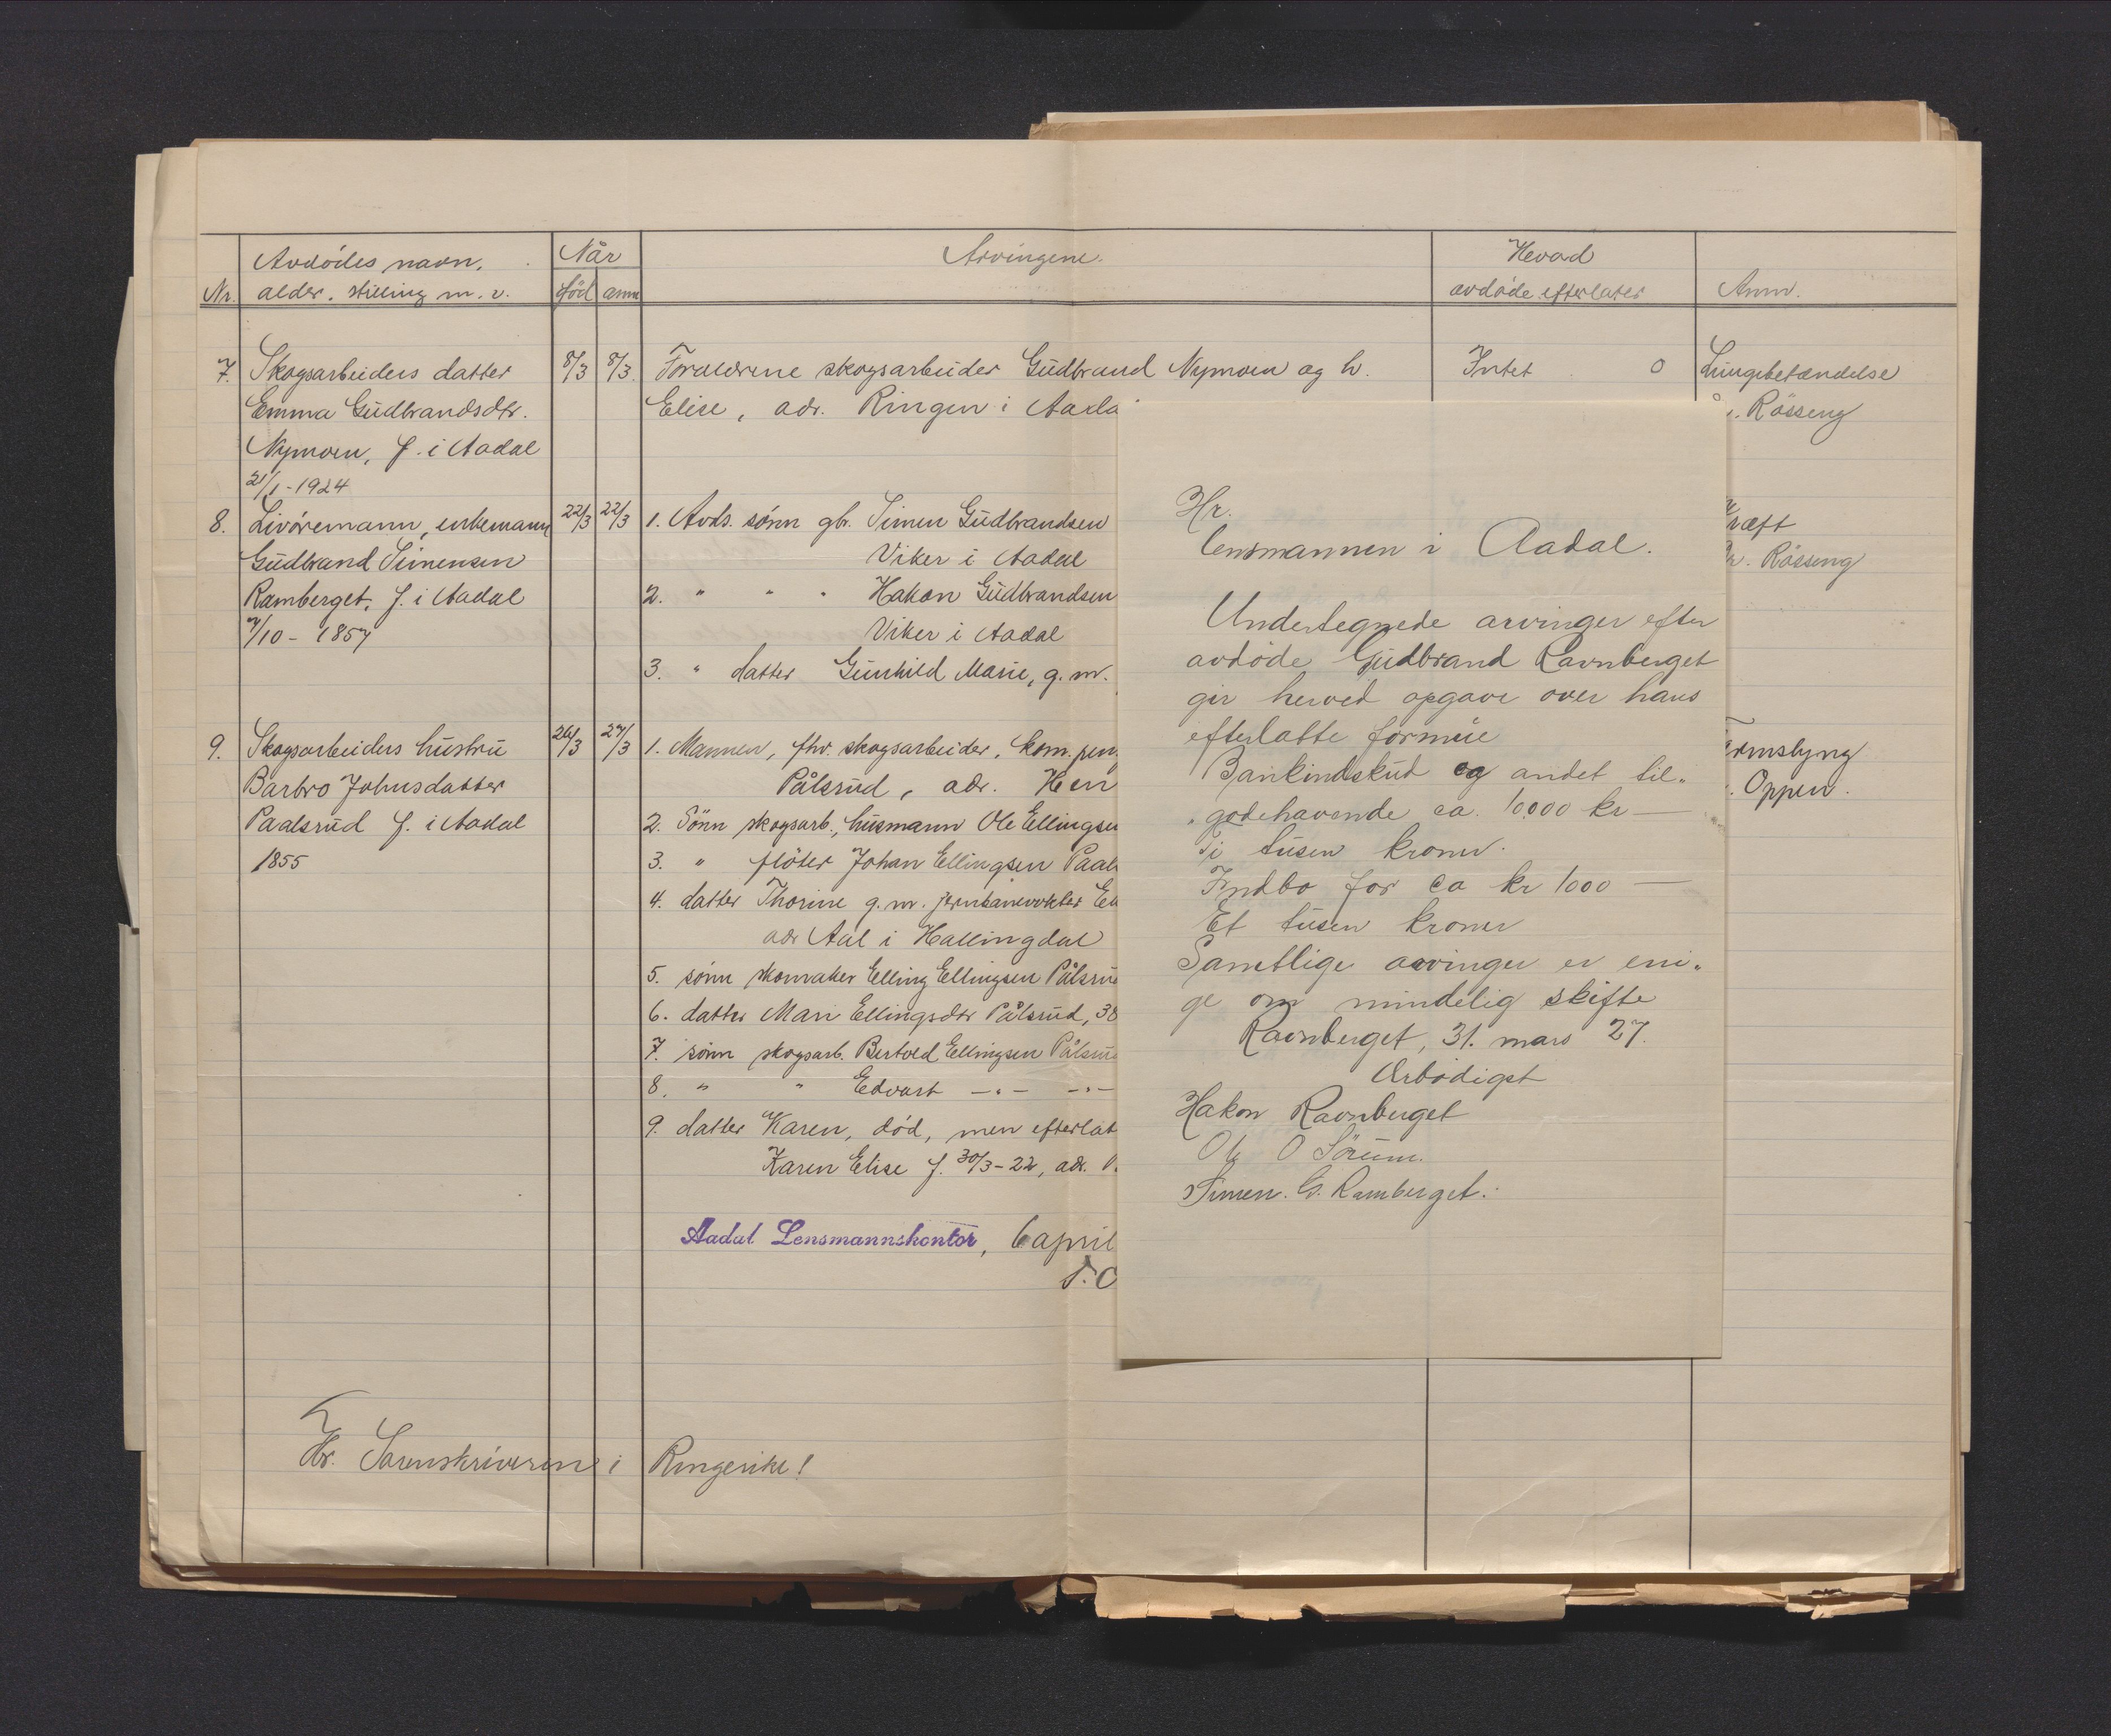 Avdödes navn,
Nr. alder. stilling m. v.
Når
död anm
Arvingene.
Hevad
avdöde efterlater
Anm.
7. Skogsarbeiders datter
Emma Gudbrandsdtr.
Nymoen, f. i Aadal
21/1-1924
8/3 8/3
Foreldrene skogsarbeider Gudbrand Nymoen og h.
Elise, adr. Ringen i Aada
Intet 0
Lungebetændelse
Rösseng
8. Livöremann, enkemann
Gudbrand Simensen
Ramberget, f. i Aadal
7/10-1857
22/3 22/3
1. Avds. sönn gbr. Simen Gudbrandsen
Viker i Aadal
2. " " " Hakon Gudbrandsen
Viker i Aadal
3. " datter Gunhild Marie, g. m.
Rösseng
9. Skogsarbeiders hustru
Barbro Johnsdatter
Paalsrud f. i Aadal
1855
26/3 27/3
1. Mannen, fhv. skogsarbeider, kom. pen
Pålsrud, adr. Hen
2. Sönn skogsarb., husmann Ole Ellingse
3. " flöter Johan Ellingsen Paal
4. datter Thorine g. m. jernbanevokter
adr Aal i Hallingdal
5. sönn skomaker Elling Ellingsen Pålsru
6. datter Mari Ellingsdtr Pålsrud, 38
7. sönn skogsarb. Bertold Ellingsen Pålsru
8. " " Edvart -"- -"-
9. datter Karen, död, men efterlat
Karen Elise f. 30/3-22, adr.
Oppen.
Aadal Lensmannskontor, 6 april
Hr. Sorenskriveren i Ringerike!
Hr.
lensmannen i Aadal.
Undertegnede arvinger efter
avdöde Gudbrand Ravnberget
gir herved opgave over hans
efterlatte formue
Bankindskud og andet til"
"godehavende ca. 10000 kr —
Ti tusen kroner.
Indbo for ca kr 1000 —
Et tusen kroner
Samtlige arvinger er eni"
ge om mindelig skifte
Ravnberget, 31. mars 27.
Ærbödigst
Hakon Ravnberget
Ole O Sörum.
Simen. G. Ramberget.